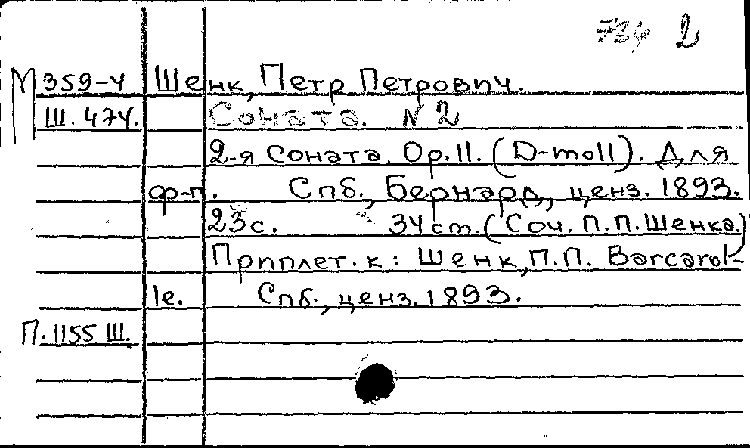 2
М 359-4 Шенк, Петр Петрович.
Ш. 474. Соната. № 2
2-я Соната. Op.11. (D-moll). Для
ф-п. Спб., Бернард, ценз. 1893.
23 с. 34 cm. (Соч. П.П.Шенка.)
Приплет. к: Шенк, П.П. Barcarol-
le. Спб., ценз. 1893.
П. 1155 Ш.